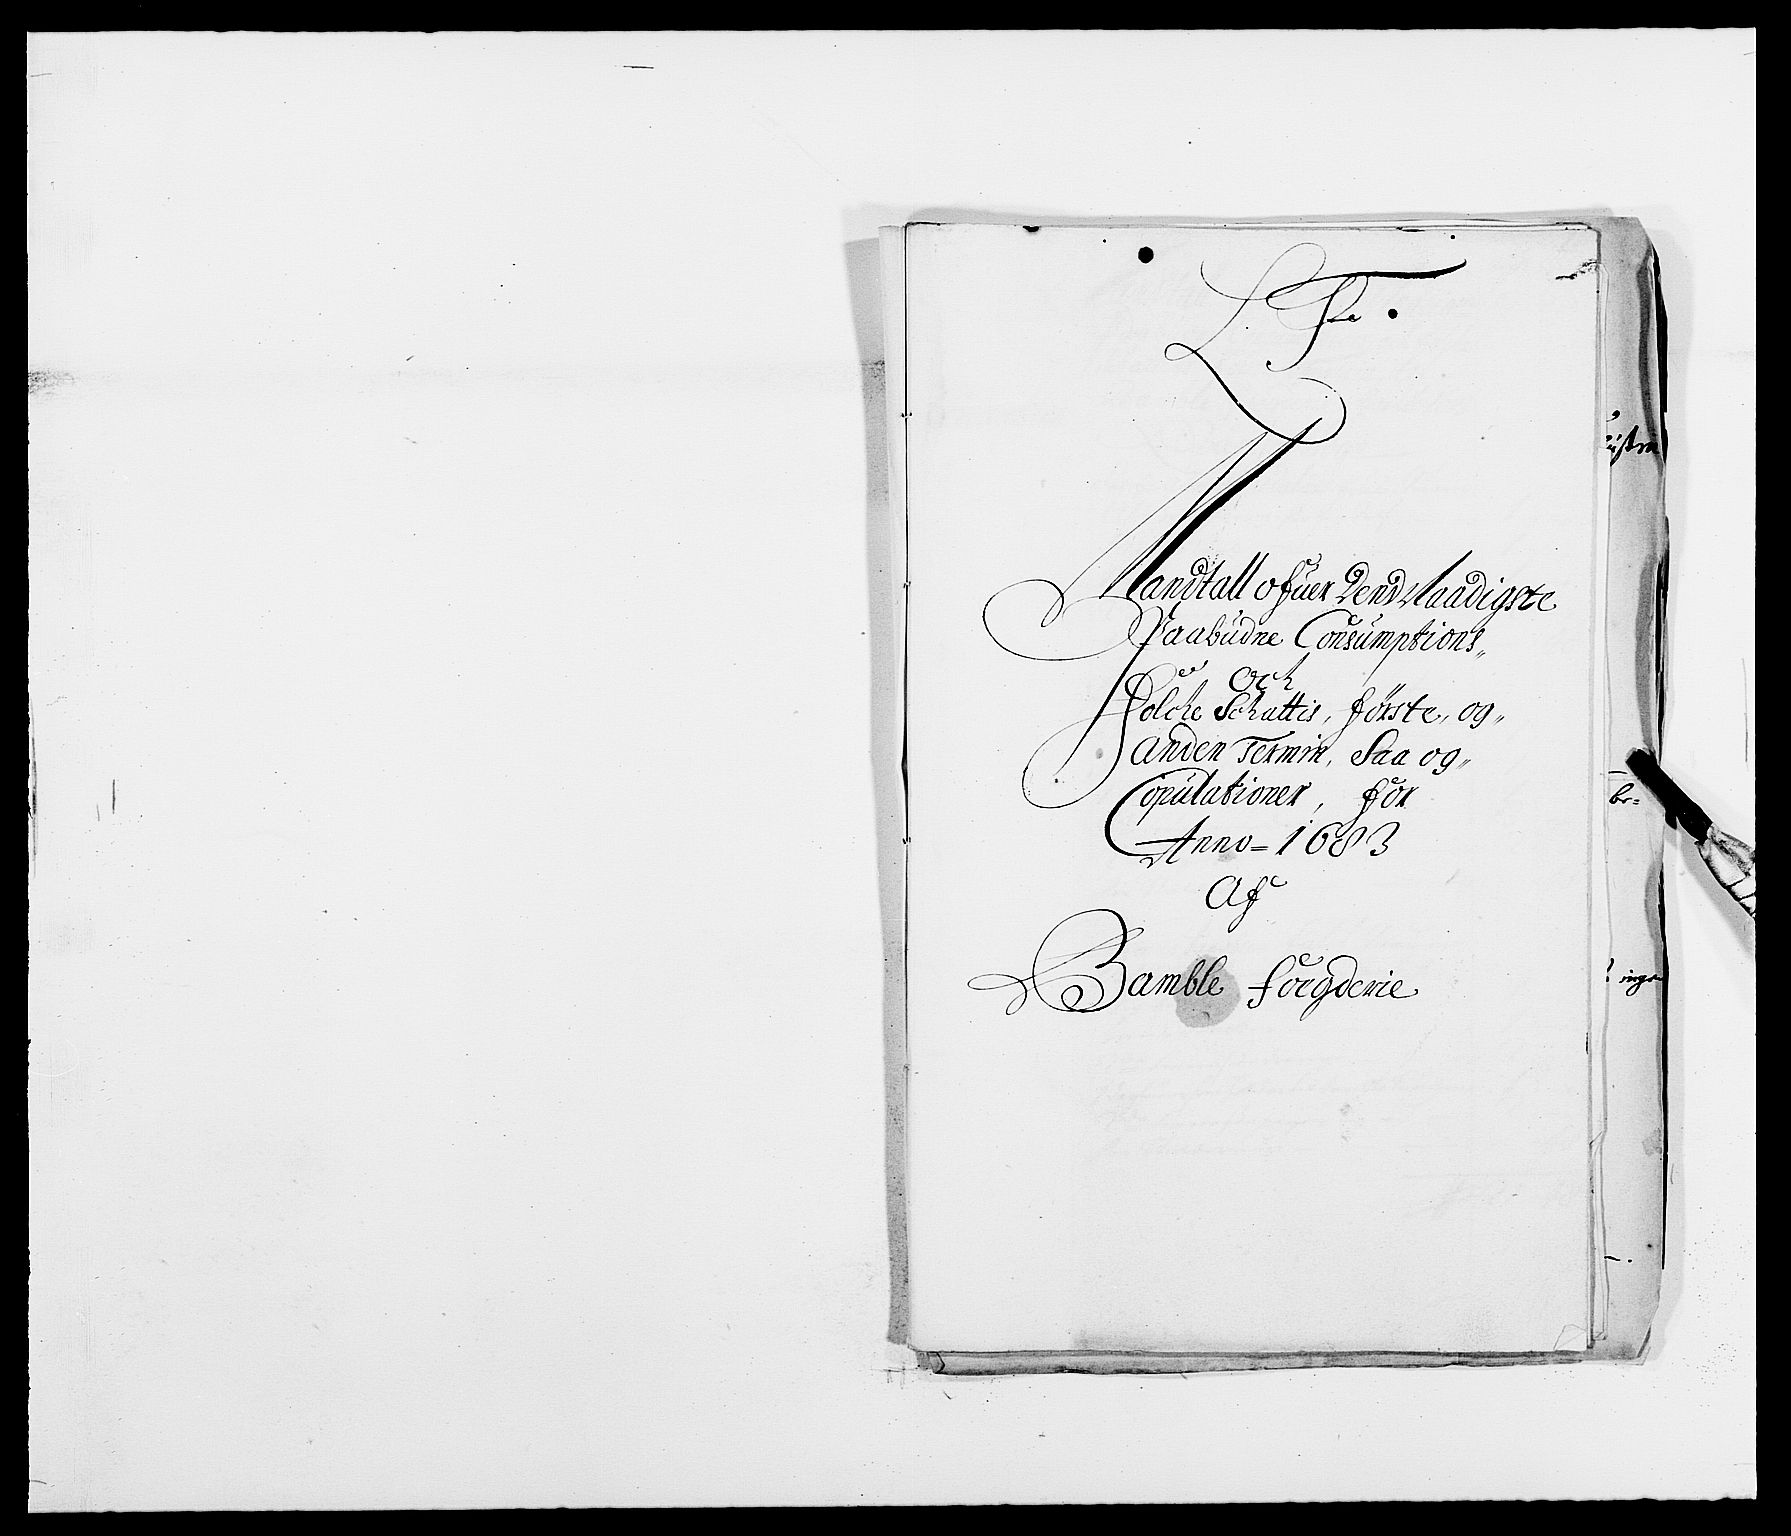 L. Fr.
Mandtall ofuer Dend Naadigste
Paabudne Consumptions„
och
Folche Schattis, første, og„
Anden Termin, Saa og„
Copulationer, for
Anno = 1683
Af
Bamble foegderie
be=